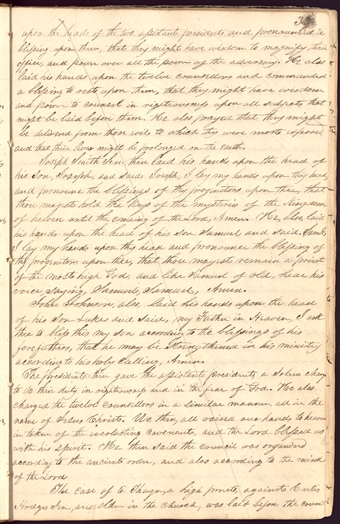 39
upon the heads of the two assistant presidents and pronounced a
blessing upon them, that they might have wisdom to magnify their
office, and power over all the power of the adversary. He also
laid his hands upon the twelve counsellors and commanded
a blessing to rest upon them, that they might have wisdom
and power to counsel in righteousness upon all subjects that
might be laid before them. He also prayed that they might
be delivered from those evils to which they were most exposed,
and that their lives might be prolonged on the earth.
Joseph Smith Sen. then laid his hands upon the head of
his son Joseph, and said, Joseph, I lay my hands upon thy head,
and pronounce the blessings of thy progenitors upon thee, that
thou mayest hold the keys of the mysteries of the kingdom
of heaven until the coming of the Lord, Amen. He also laid
his hands upon the head of his son Samuel and said, Samuel,
I lay my hands upon thy head and pronounce the blessing of
thy progenitors upon thee, that thou mayest remain a priest
of the most high God, and like Samuel of old, hear his
voice, saying, Samuel, Samuel, Amen.
John Johnson also laid his hands upon the head
of his son Luke and said, my Father in Heaven, I ask
thee to bless this my son according to the blessings of his
forefathers, that he may be strengthened in his ministry
according to his holy calling, Amen.
The president then gave the assistant presidents a solemn charge
to do their duty in righteousness and in the fear of God. He also
charged the twelve counsellors in a similar manner, all in the
name of Jesus Christ. We then, all raised our hands to heaven
in token of the everlasting covenant, and the Lord blessed us
with his spirit. He then said the council was organized
according to the ancient order, and also according to the mind
of the Lord.
The case of E. Thayer, a high priest, against Curtis
Hodges Sen., an elder in the church, was laid before the council